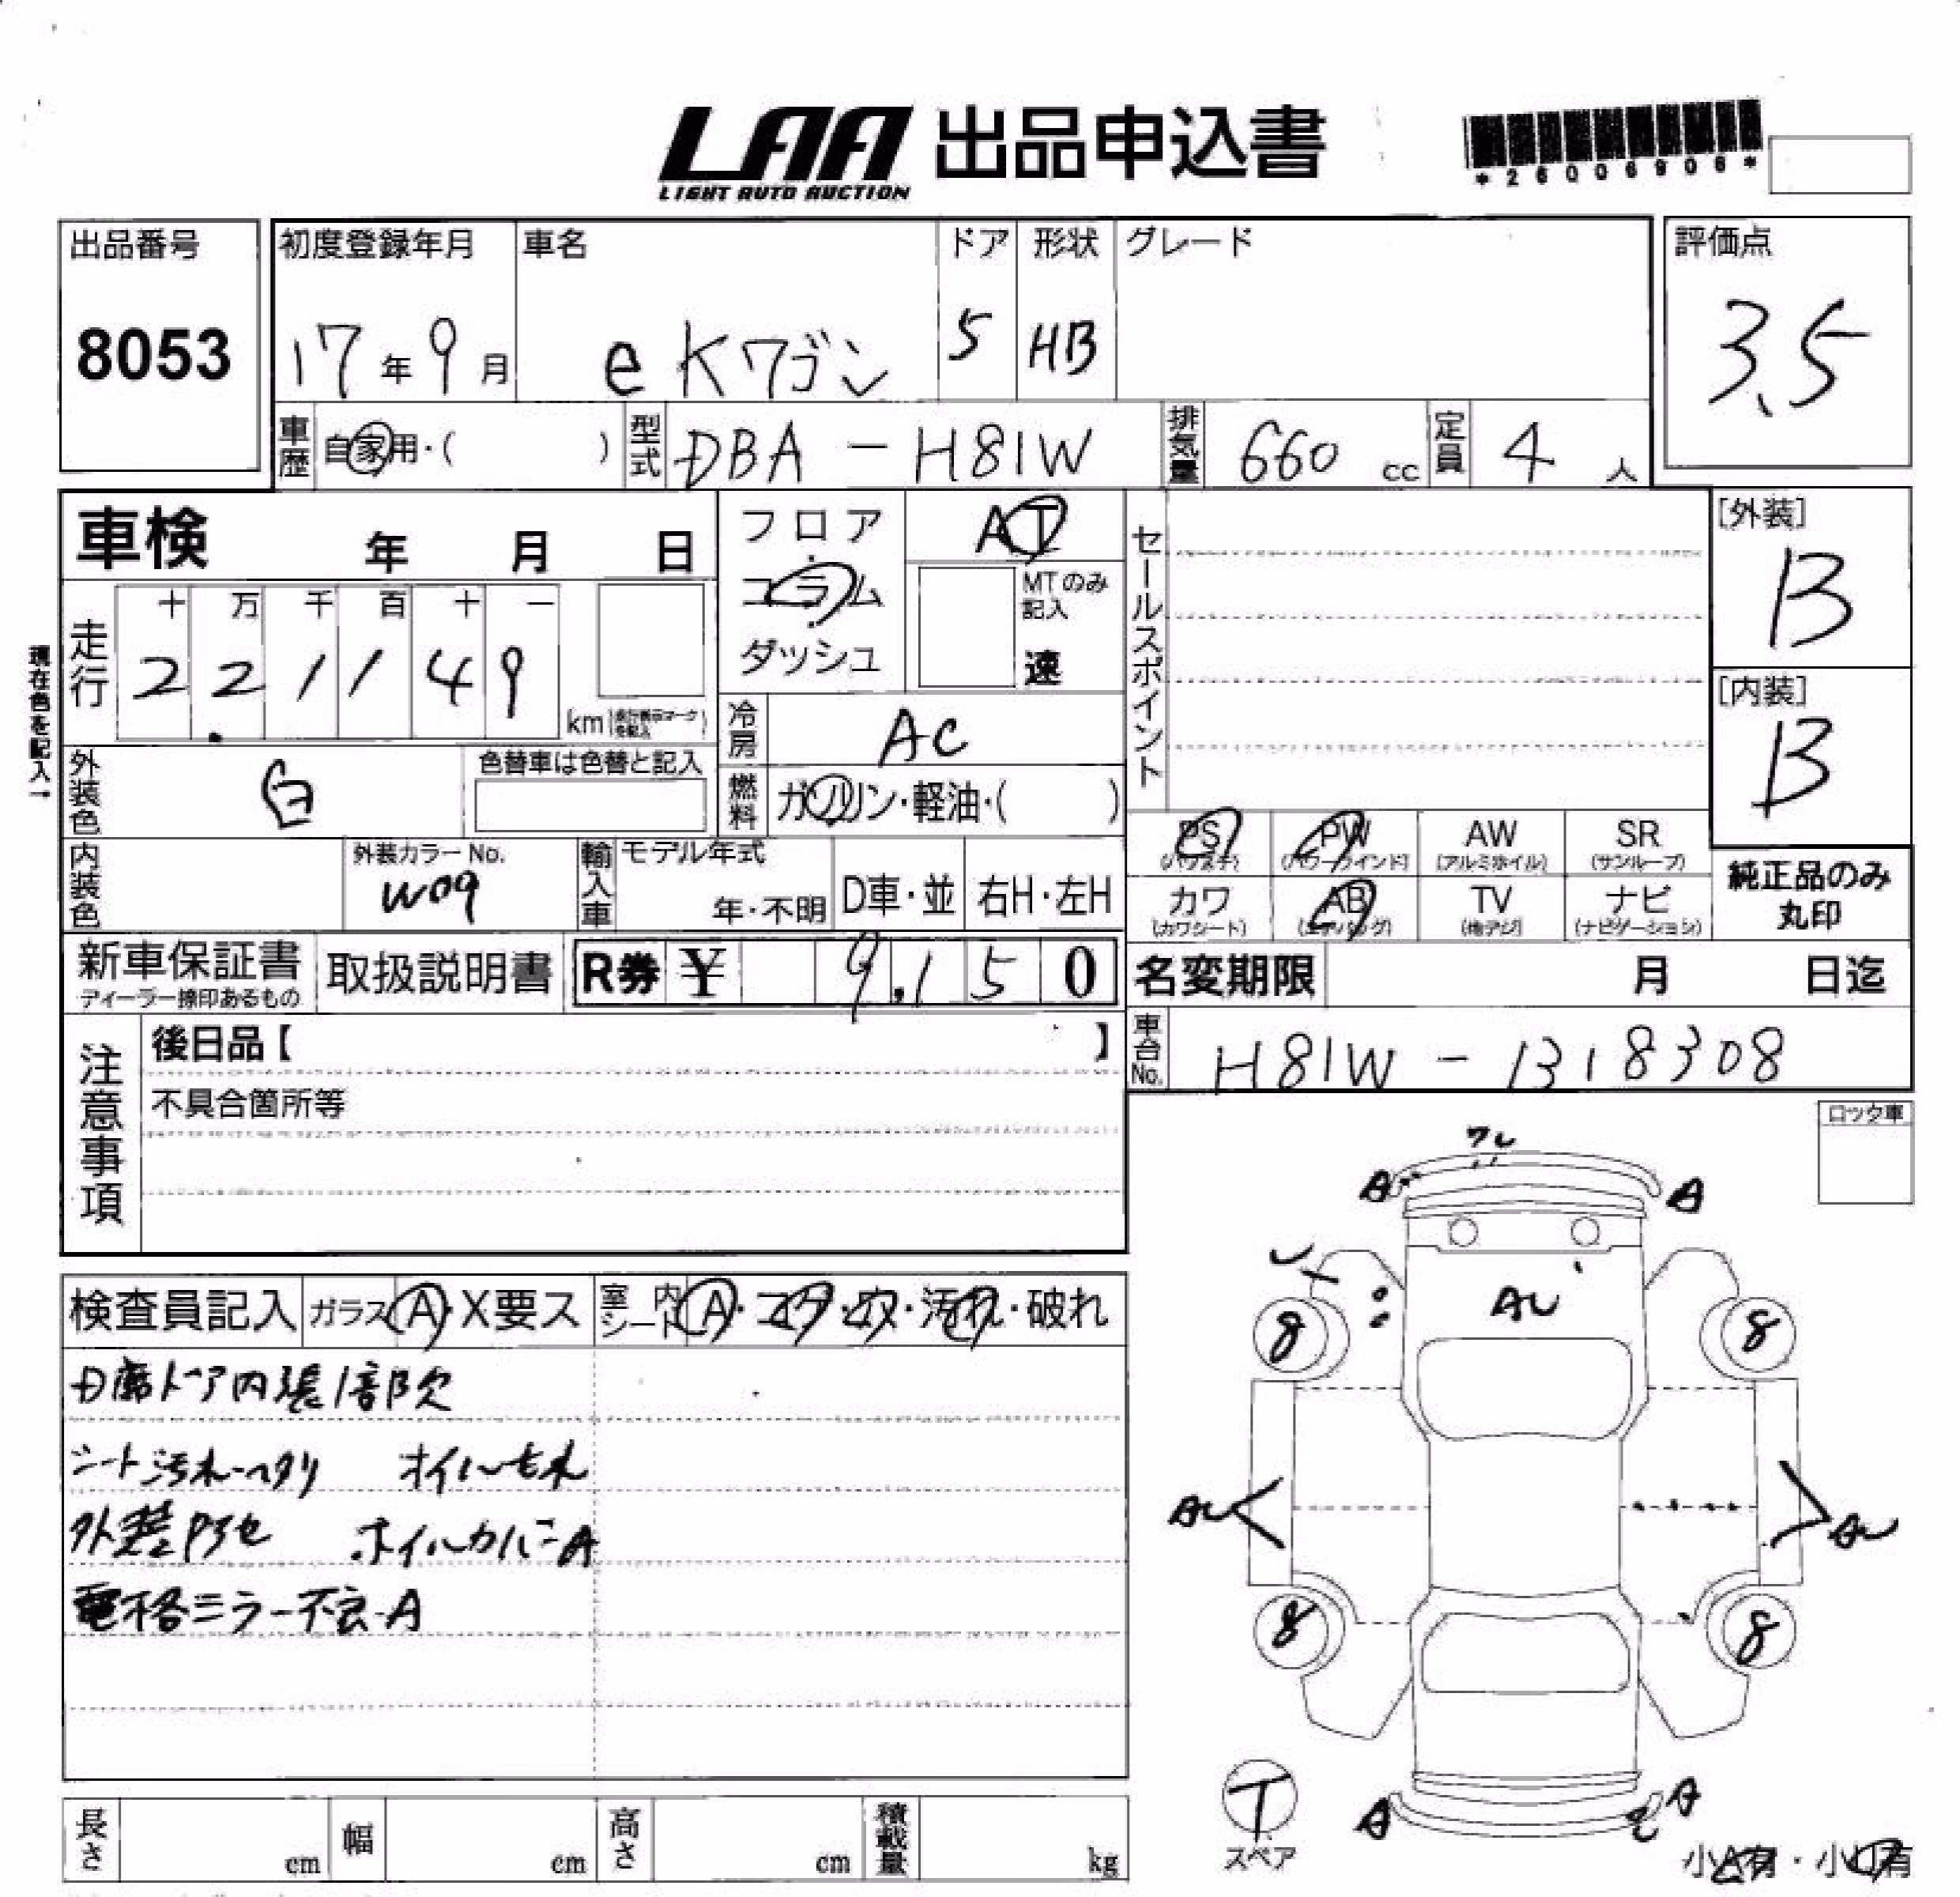 LAA 出品申込書
LIGHT AUTO AUCTION
*26006906*
出品番号
8053
初度登録年月
17年9月
車名
eKワゴン
ドア
5
形状
HB
グレード
評価点
3.5
車歴 自家用・( )
型式 DBA-H81W
排気量 660 cc
定員 4人
車検 年 月 日
フロア
コラム
ダッシュ
AT
MTのみ記入
速
セールスポイント
[外装]
B
[内装]
B
現在色を記入→
走行
十 万 千 百 十 一
2 2 1 1 4 9
km
冷房 AC
外装色 白
色替車は色替と記入
燃料 ガソリン・軽油・( )
内装色
外装カラーNo.
W09
輸入車
モデル年式
年・不明
D車・並
右H・左H
PS (パワステ)
PW (パワーウインド)
AW (アルミホイル)
SR (サンルーフ)
カワ (カワシート)
AB (エアバッグ)
TV (地デジ)
ナビ (ナビゲーション)
純正品のみ
丸印
新車保証書
ディーラー捺印あるもの
取扱説明書
R券 ¥ 9,150
名変期限 月 日迄
車台No. H81W-1318308
注意事項
後日品【 】
不具合箇所等
ロック車
検査員記入
ガラス A・X要ス
室内シート A・コゲ・穴・汚れ・破れ
D席ドア内張1部欠
シート汚れ・ヘタリ オイルモレ
外装色アセ ホイルカバーA
電格ミラー不良・A
ワレ
A A
AU
8 8
AU AU
8 8
A A
T
スペア
小A有・小U有
長さ cm
幅 cm
高さ cm
積載量 kg